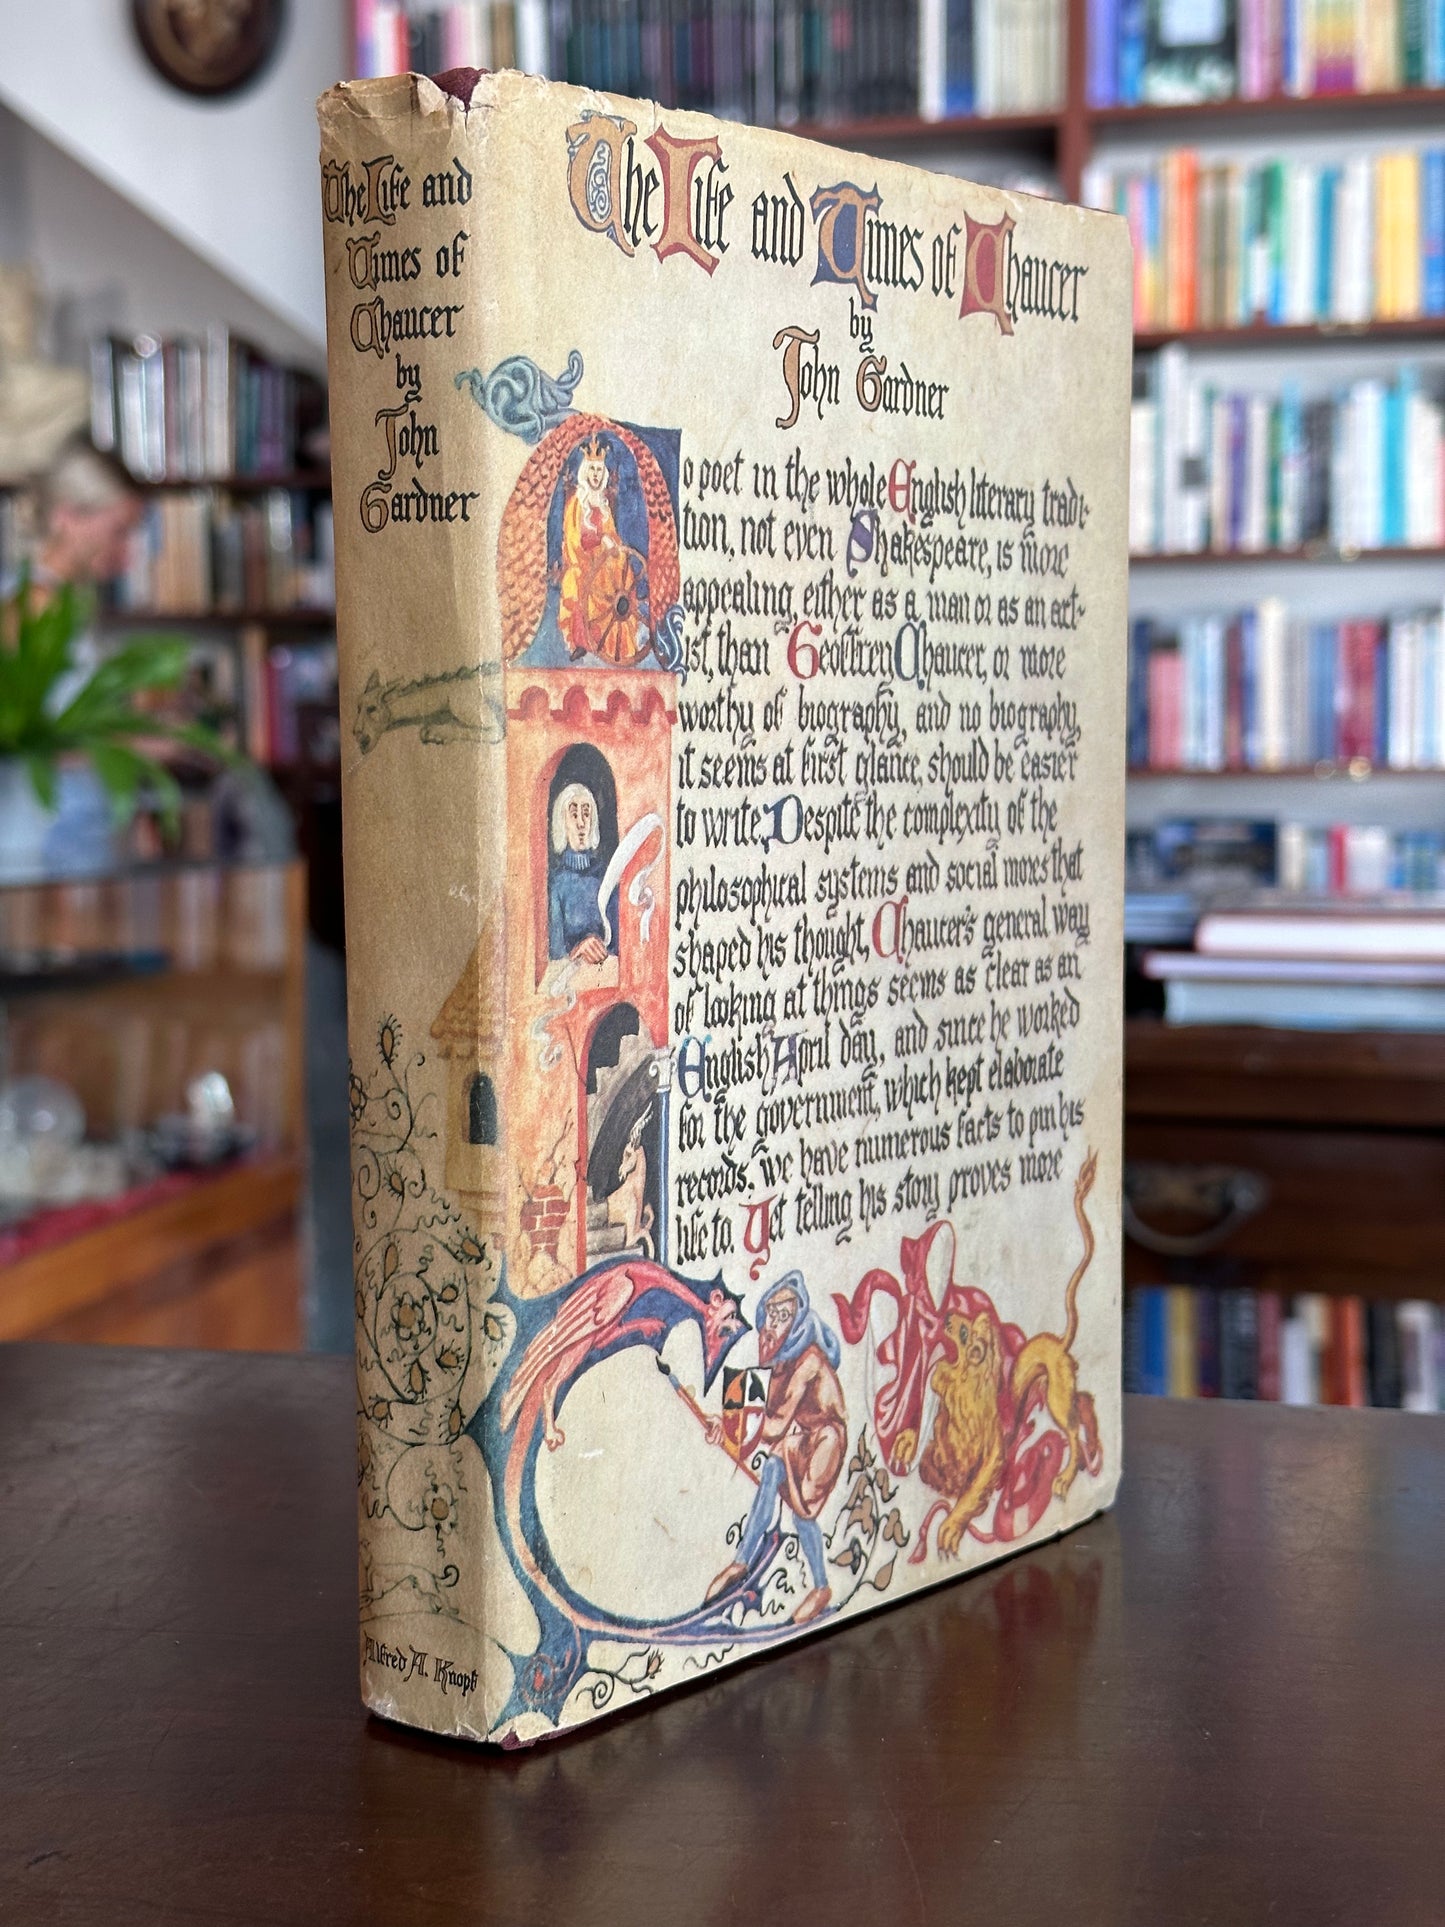 The Life and
Times of
Chaucer
by
John
Gardner
Alfred A. Knopf
The Life and Times of Chaucer
by
John Gardner
No poet in the whole English literary tradi-
tion, not even Shakespeare, is more
appealing, either as a man or as an art-
ist, than Geoffrey Chaucer, or more
worthy of biography, and no biography,
it seems at first glance, should be easier
to write. Despite the complexity of the
philosophical systems and social mores that
shaped his thought, Chaucer's general way
of looking at things seems as clear as an
English April day, and since he worked
for the government, which kept elaborate
records, we have numerous facts to pin his
life to. Yet telling his story proves more